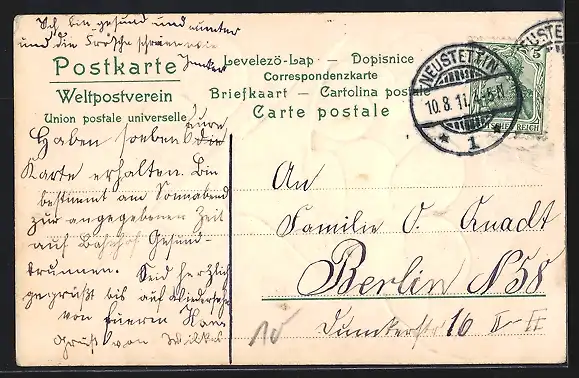 Ich bin gesund und munter
und die Frösche schreien wie
Postkarte
Levelezö-Lap — Dopisnice
Correspondenzkarte
Weltpostverein
Briefkaart — Cartolina postale
Union postale universelle
Carte postale
NEUSTETTIN
10.8.11. 4-5N
* 1 *
NEUSTETTIN
5
DEUTSCHES REICH
Haben soeben eure
Karte erhalten. Bin
bestimmt am Sonnabend
zur angegebenen Zeit
auf Bahnhof Gesund-
brunnen. Seid herzlich
gegrüßt bis auf Wiedersehn
von Euerem Hans
Gruß von
An
Familie O. Knadt
Berlin N 58
Dunkerstr 16 II
10